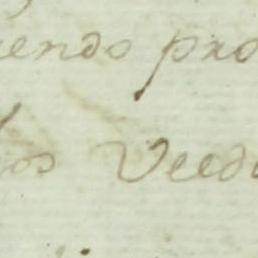 endo pro
los Veedo